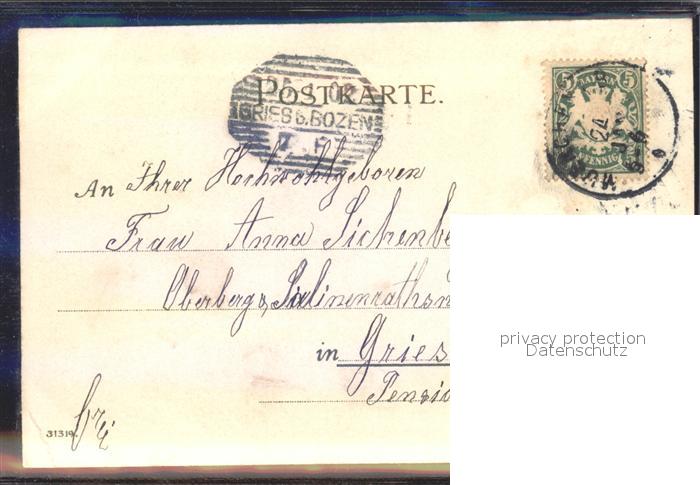 POSTKARTE.
GRIES b. BOZEN
BAYERN
5 5
PFENNIG
MÜNCHEN
24
An Ihrer Hochwohlgeboren
Frau Anna Sickenbe
Oberberg & Salinenraths
in Gries
Pensio
privacy protection
Datenschutz
31319.